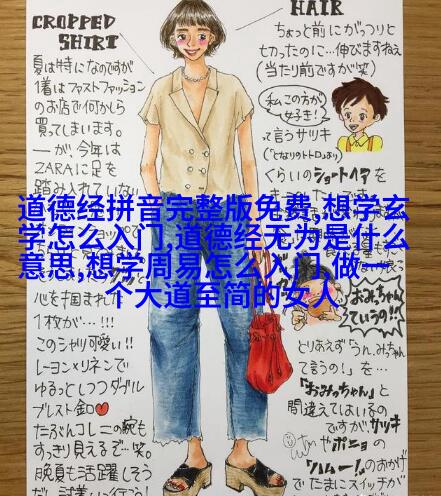 CROPPED
SHIRT
HAIR
夏は特になのですが
1着はファストファッション
のお店で何かしら
買ってしまいます。
一が、今年は
ZARAに足を
踏み入れていない
ちょっと前にがっつりと
七刀ったのに…伸びますねぇ
(当たり前ですが笑)
私この方が
女子き!
って言うサツキ
(「となりのトトロ」より)
くらいのショートヘアを
道德经拼音完整版免费,想学玄
学怎么入门,道德经无为是什么
意思,想学周易怎么入门,做一
个大道至简的女人
心を掴まれた
1枚が…!!!
このシャツ可愛い!!
レーヨン×リネンで
ゆるっとしつつダブル
ブレスト釦
たぶんコレ二の腕も
すっきり見えるぞ…笑。
晩夏も活躍しそう
おみっちゃん
ていうの!!
とりあえず「うん、みちゃん
て言うの!」を
「おみっちゃん」と
間違えてはいるの
ですが、サツキ
やポニョの
「ハムー!」のおかげ
でたまにスイッチが